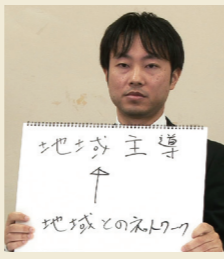 地域主導
↑
地域とのネットワーク